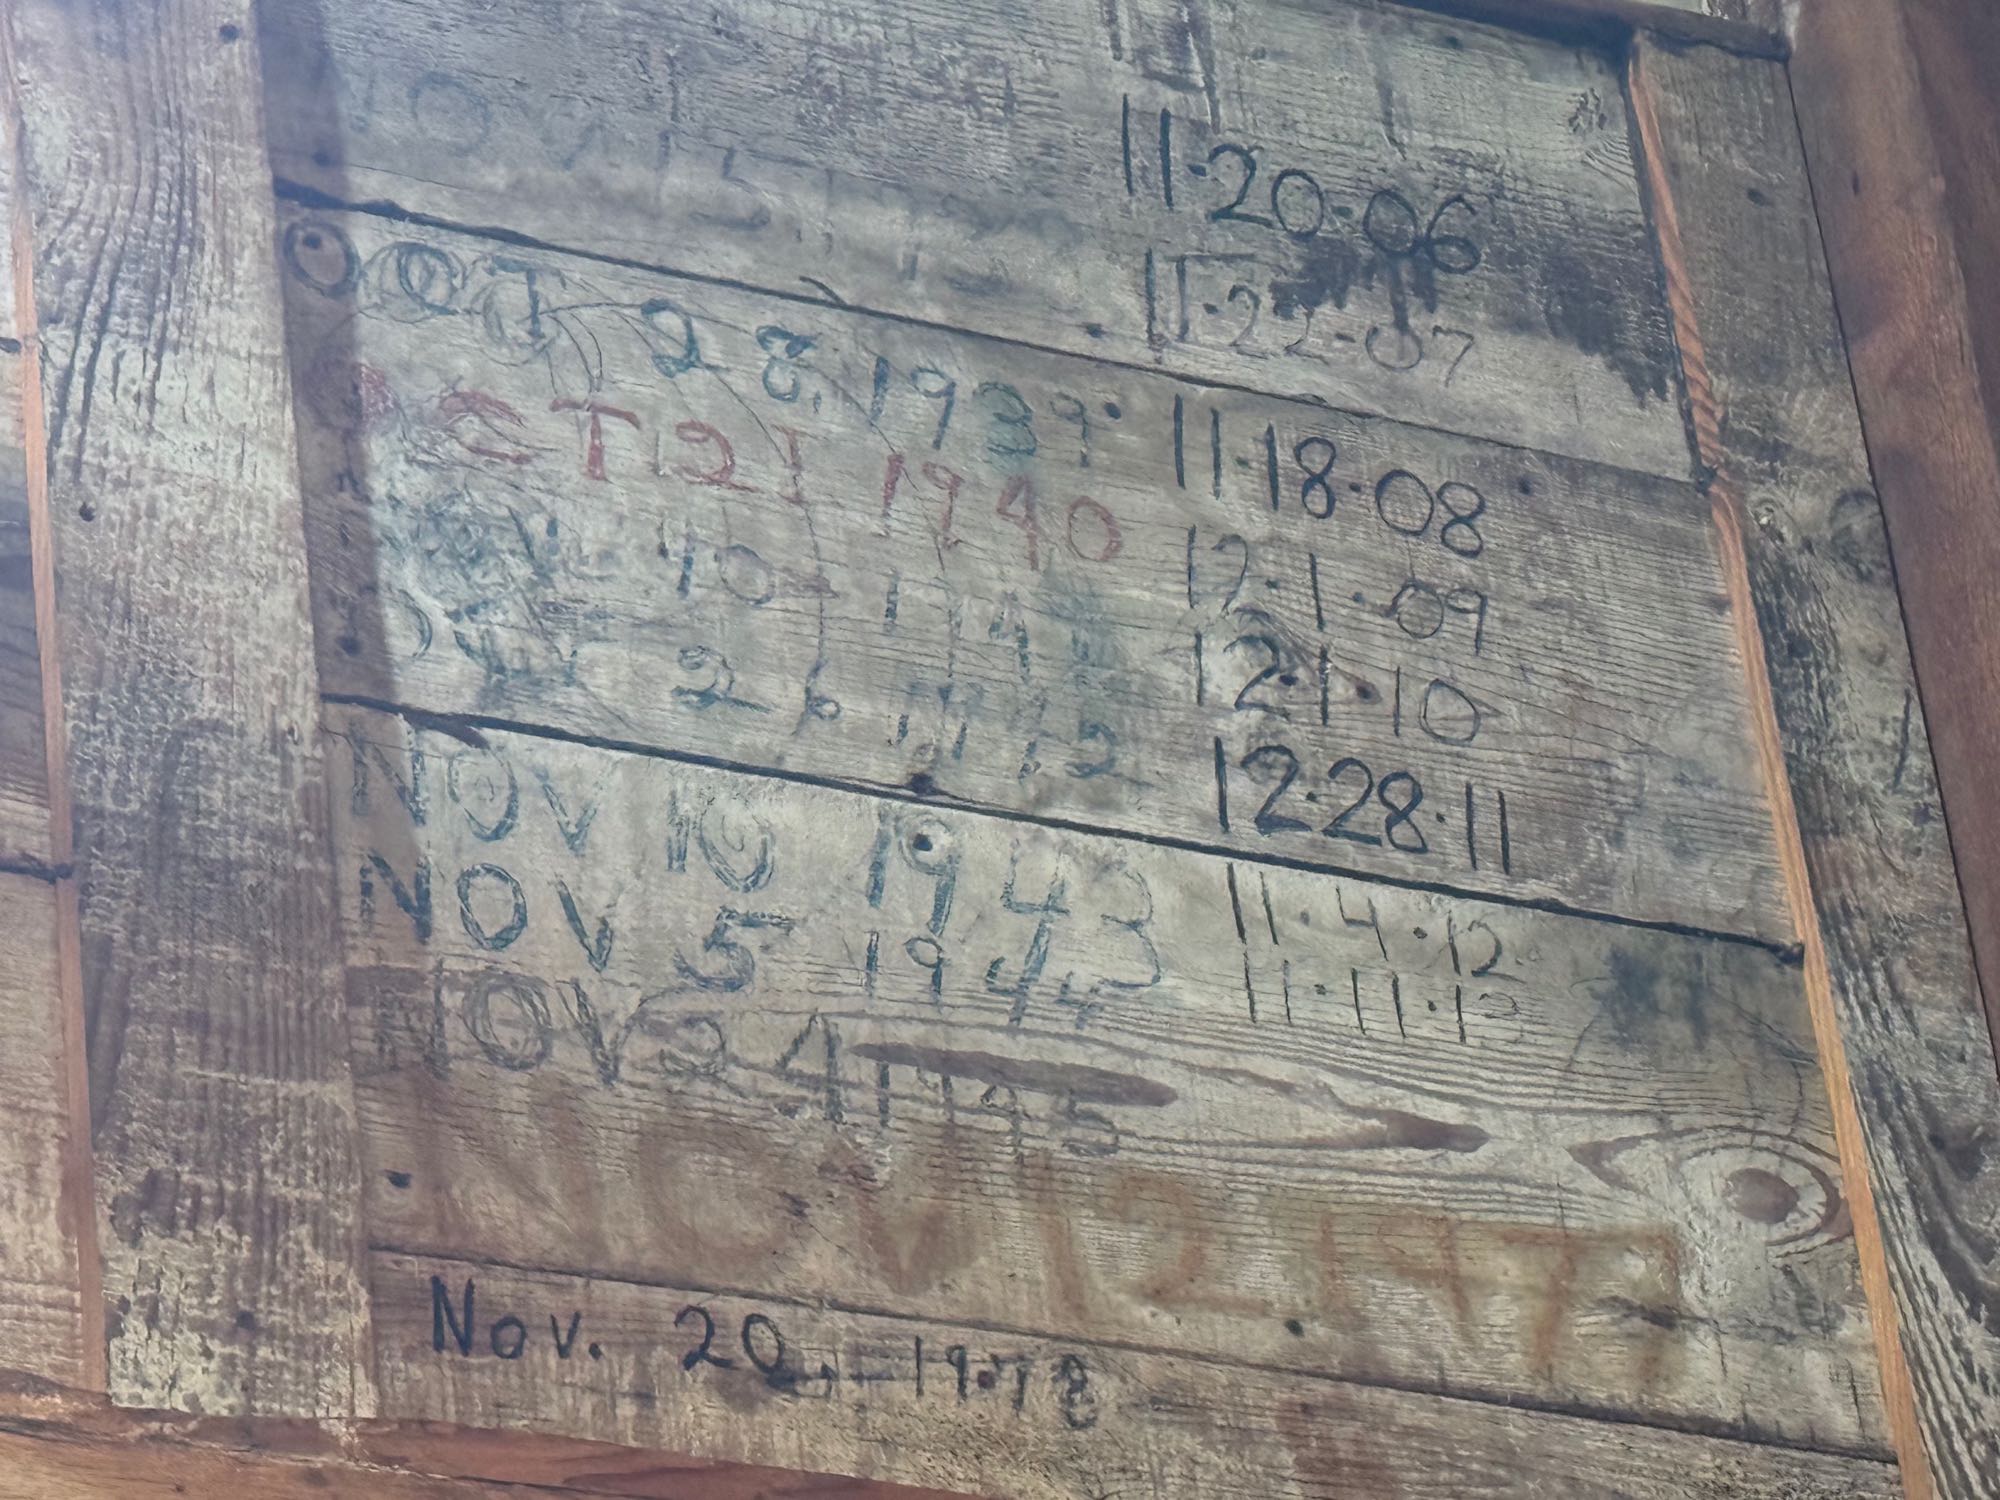 OCT 28, 1939
OCT 21 1940
10
26 1942
NOV 10 1943
NOV 5 1944
NOV 24 1945
NOV 12 1977
Nov. 20, 1978
11·20·06
11·22·07
11·18·08
12·1·09
12·1·10
12·28·11
11·4·12
11·11·13